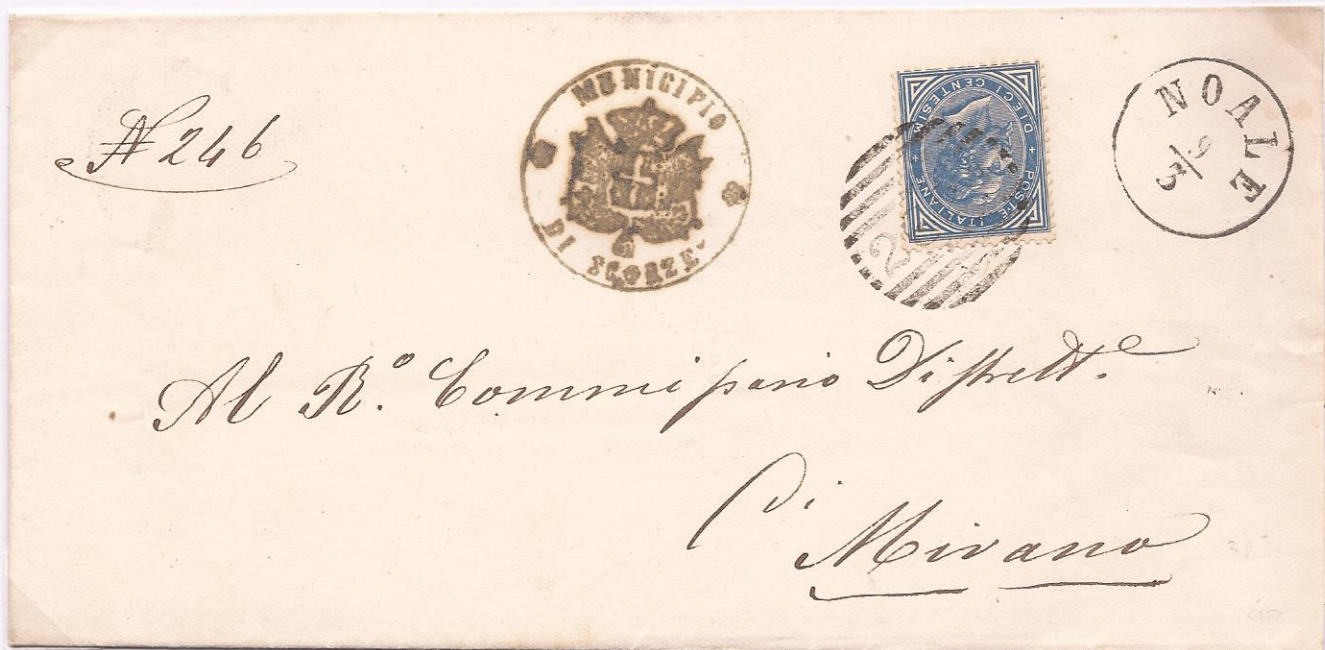 N 246
MUNICIPIO
DI SCORZE'
POSTE ITALIANE + DIECI CENTESIMI +
2
NOALE
9/3
Al R.o Commissario Distrett.e
di
Mirano